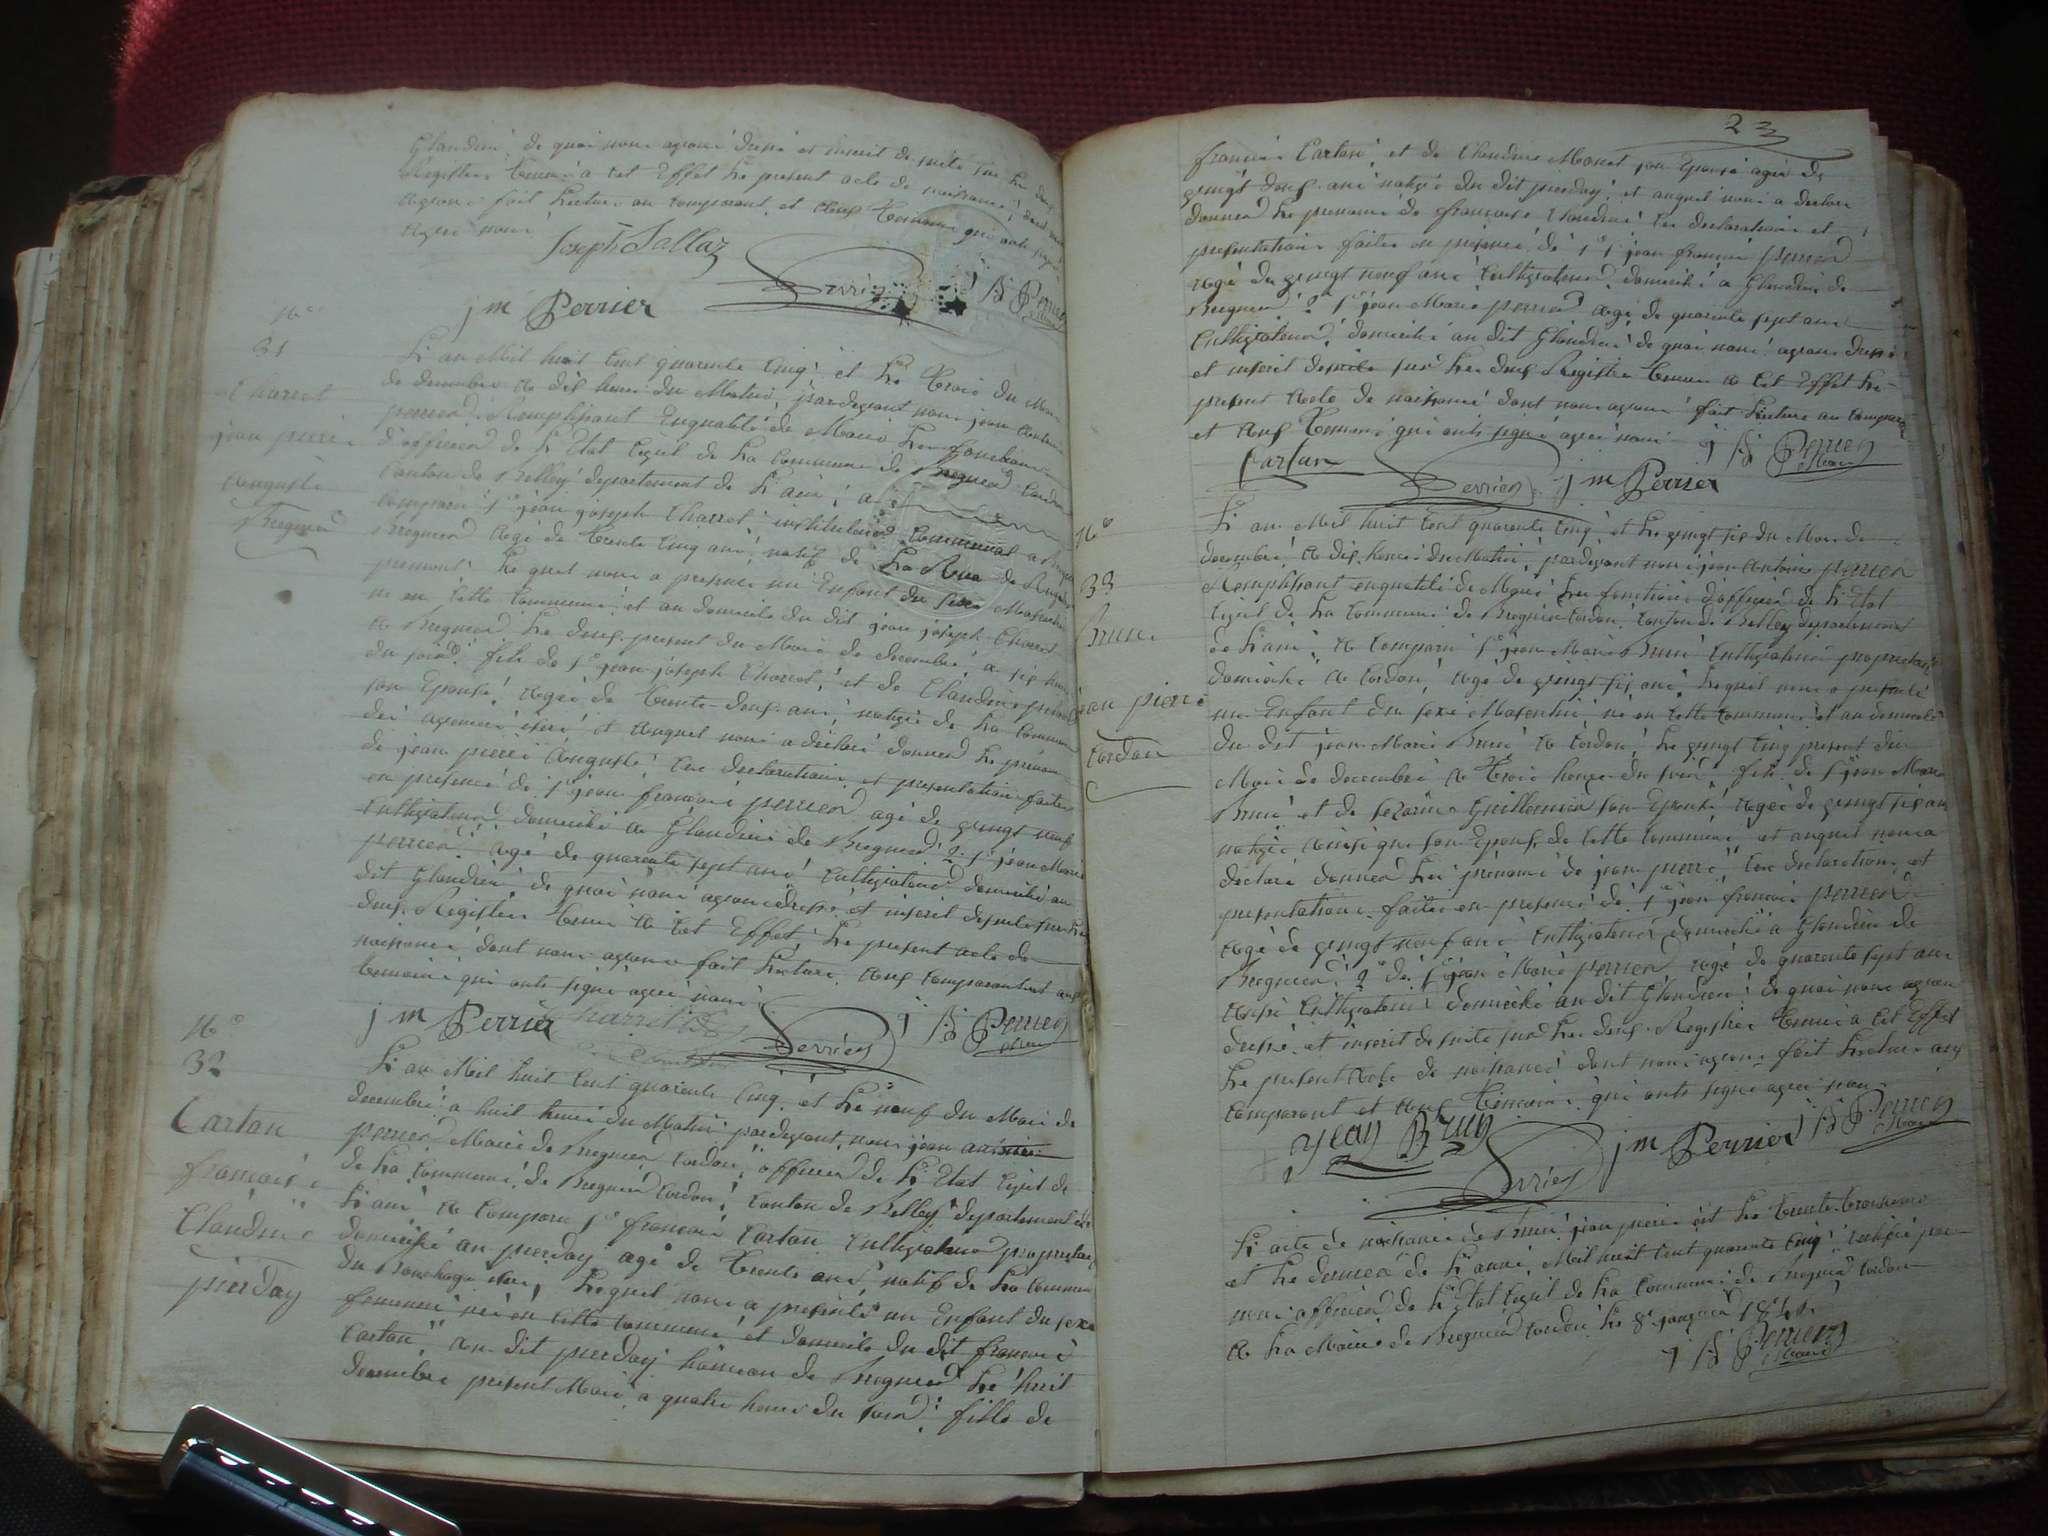 Glandieu, de quoi nous avons dressé et inscrit de suite sur les deux
Registres tenus à cet Effet le present acte de naissance, dont nous
avons fait Lecture au comparant et aux temoins qui onts signé
avec nous
Joseph Sallaz
Perrier
j B Perrier
Maire
j m Perrier
No
31
Charret
jean pierre
auguste
Bregnier
L'an Mil huit cent quarante cinq et le trois du Mois
de decembre à dix heures du Matin, pardevant nous jean antoine
perrier Remplissant Enqualité de Maire les fonctions
d'officier de L'Etat Civil de la commune de Bregnier Cordon
Canton de Belley departement de L'ain, a
comparu Sr jean joseph Charret, instituteur communal a
Bregnier agé de trente cinq ans, natif de La Rua de
piemont Lequel nous a presenté un Enfant du sexe Masculin
né en cette commune et au domicile du dit jean joseph Charret
a Bregnier le deux present du Mois de decembre, a six heures
du soir, fils de Sr jean joseph Charret, et de Claudine
son Epouse, agée de trente deux ans, native de la commune
et auquel nous a déclaré donner le prénom
de jean pierre auguste, ces declarations et presentation faites
en presence de 1o Sr jean françois perrier agé de vingt neuf
Cultivateur domicilié a Glandieu de Bregnier 2o Sr jean Marie
perrier agé de quarante sept ans Cultivateur domicilié au
dit Glandieu, de quoi nous avons dressé et inscrit desuite sur les
deux Registres tenus à cet Effet, le present acte de
naissance dont nous avons fait Lecture aux comparant et aux
temoins qui onts signé avec nous
j m Perrier
Charret
Perrier
j B Perrier
Maire
No
32
Cartan
françoise
Claudine
pierday
L'an Mil huit cent quarante cinq, et le neuf du Mois de
decembre a huit heures du Matin pardevant nous jean antoine
perrier Maire de Bregnier Cordon, officier de L'Etat Civil de
de la commune de Bregnier Cordon, canton de Belley departement de
L'ain a comparu Sr françois Cartan cultivateur propriétaire
domicilié au pierday agé de trente ans natif de la commune
du Bouchage Lequel nous a presenté un Enfant du sexe
feminin née en cette commune et domicile du dit françois
Cartan au dit pierday hameau de Bregnier le huit
decembre present Mois a quatre heures du soir, fille de
23
françois Cartan, et de Claudine Monet son Epouse agée de
vingt deux ans native du dit pierday, et auquel nous a declaré
donner le prenoms de françoise Claudine, ces declarations et
presentations faites en presence de 1o Sr jean françois perrier
agé de vingt neuf ans cultivateur domicilié a Glandieu de
Bregnier, 2o Sr jean Marie perrier agé de quarante sept ans
Cultivateur, domicilié au dit Glandieu de quoi nous avons dressé
et inscrit desuite sur les deux Registres tenus a cet Effet le
present acte de naissance dont nous avons fait Lecture au comparant
et aux temoins qui onts signé avec nous
j B Perrier
Maire
Cartan
Perrier
j m Perrier
No
33
Brun
jean pierre
Cordon
L'an Mil huit cent quarante cinq et le vingt six du Mois de
decembre, a dix heures du Matin, pardevant nous jean antoine perrier
Remplissant enqualité de Maire les fonctions d'officier de L'Etat
Civil de la commune de Bregnier Cordon, Canton de Belley departement
de L'ain, a comparu Sr jean Marie Brun Cultivateur propriétaire
domicilié a Cordon, agé de vingt six ans, Lequel nous a presenté
un Enfant du sexe Masculin, né en cette commune et au domicile
du dit jean Marie Brun a Cordon, le vingt cinq present du
Mois de decembre a trois heures du soir, fils de Sr jean Marie
Brun et de Guillermin son Epouse, agée de vingt six ans
native ainsi que son Epoux de cette commune et auquel nous a
declaré donner les prenoms de jean pierre, ces declarations et
presentations faites en presence de 1o Sr jean françois perrier
agé de vingt neuf ans Cultivateur domicilié a Glandieu de
Bregnier, 2o de Sr jean Marie perrier agé de quarante sept ans
aussi Cultivateur domicilié au dit Glandieu, de quoi nous avons
dressé et inscrit de suite sur les deux Registres tenus a cet Effet
Le present acte de naissance dont nous avons fait Lecture aux
comparant et aux temoins qui onts signé avec nous
jean Brun
Perrier
j m Perrier
j B Perrier
Maire
L'acte de naissance de Brun jean pierre est le trente troisieme
et le dernier de L'année Mil huit cent quarante cinq, certifié par
nous officier de L'Etat Civil de la commune de Bregnier Cordon
a la Mairie de Bregnier Cordon le 8 janvier
j B Perrier
Maire